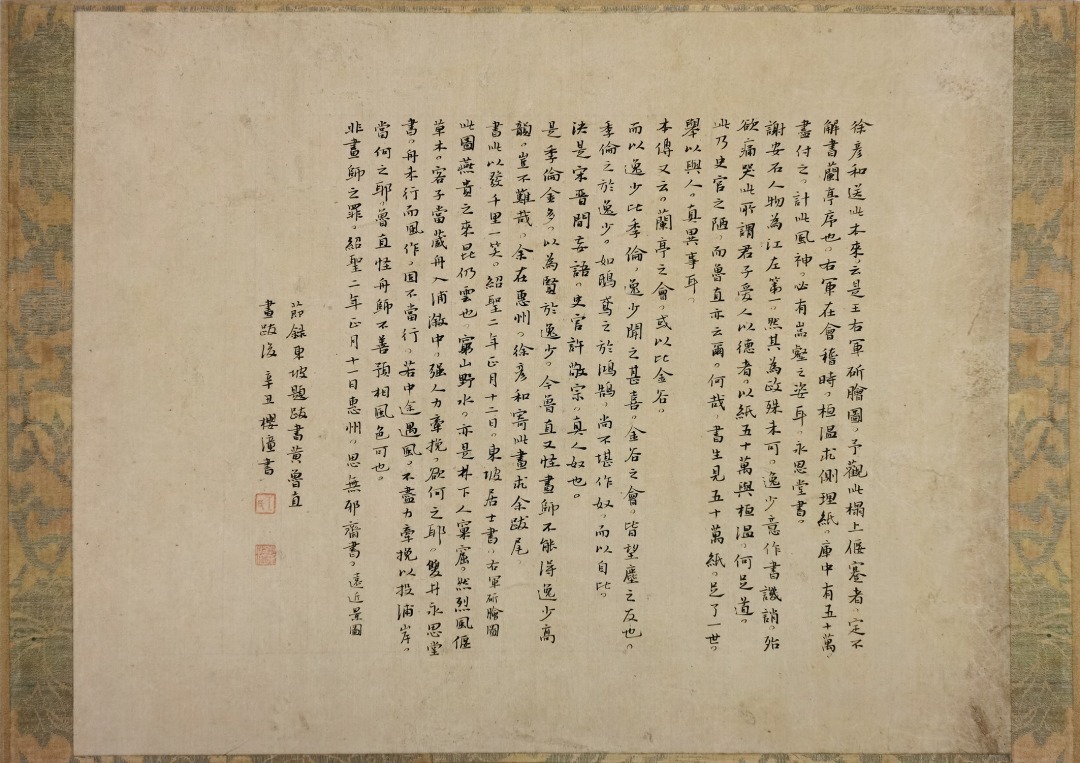 徐彥和送此本來，云是王右軍斫膾圖，予觀此榻上偃蹇者，定不
解書蘭亭序也。右軍在會稽時，桓溫求側理紙，庫中有五十萬，
盡付之。計此風神，必有嵓壑之姿耳。永思堂書。
謝安石人物為江左第一，然其為政殊未可，逸少意作書譏誚，殆
欲痛哭。此所謂君子愛人以德者。以紙五十萬與桓溫，何足道。
此乃史官之陋，而魯直亦云爾，何哉。書生見五十萬紙，足了一世。
舉以與人，真異事耳。
本傳又云。蘭亭之會，或以比金谷。
而以逸少比季倫，逸少聞之甚喜。金谷之會，皆望塵之友也。
季倫之於逸少。如鴟鳶之於鴻鵠，尚不堪作奴，而以自比。
決是宋晉間妄語。史官許敬宗。真人奴也。
是季倫金多，以為賢於逸少。今魯直又怪畫師不能得逸少高
韻。豈不難哉。余在惠州，徐彥和寄此畫求余跋尾。
書此以發千里一笑。紹聖二年正月十二日。東坡居士書。右軍斫膾圖
此圖燕貴之來昆仍雲也。窮山野水，亦是林下人窠窟。然烈風偃
草木。客子當藏舟入浦漵中，强人力牽挽，欲何之耶。雙井永思堂
書，舟未行而風作，固不當行，若中途遇風，不盡力牽挽以投浦岸。
當何之耶。魯直怪舟師不善預相風色可也。
非畫師之罪。紹聖二年正月十一日惠州，思無邪齋書。遠近景圖
節錄東坡題跋書黃魯直
畫跋後 辛丑 櫻潼書